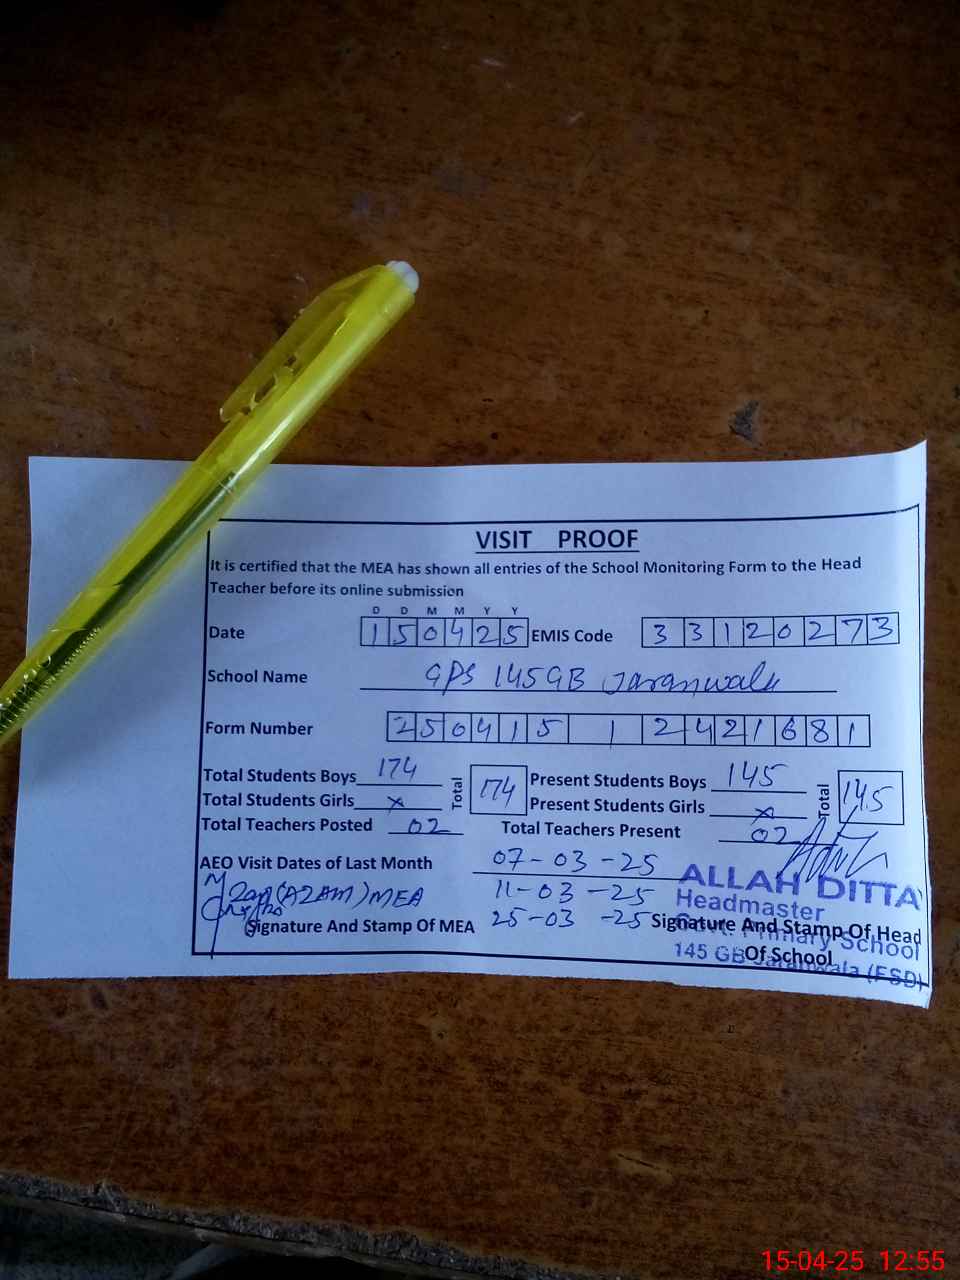 VISIT PROOF
It is certified that the MEA has shown all entries of the School Monitoring Form to the Head
Teacher before its online submission
D D M M Y Y
Date 1 5 0 4 2 5 EMIS Code 3 3 1 2 0 2 7 3
School Name GPS 145 GB Jaranwala
Form Number 2 5 0 4 1 5 1 2 4 2 1 6 8 1
Total Students Boys 174 Total 174 Present Students Boys 145 Total 145
Total Students Girls x Present Students Girls x
Total Teachers Posted 02 Total Teachers Present 02
AEO Visit Dates of Last Month 07-03-25
11-03-25
25-03-25
(AZAM) MEA
Signature And Stamp Of MEA
Signature And Stamp Of Head
Of School
ALLAH DITTA
Headmaster
Govt. Primary School
145 GB Jaranwala (FSD)
15-04-25 12:55